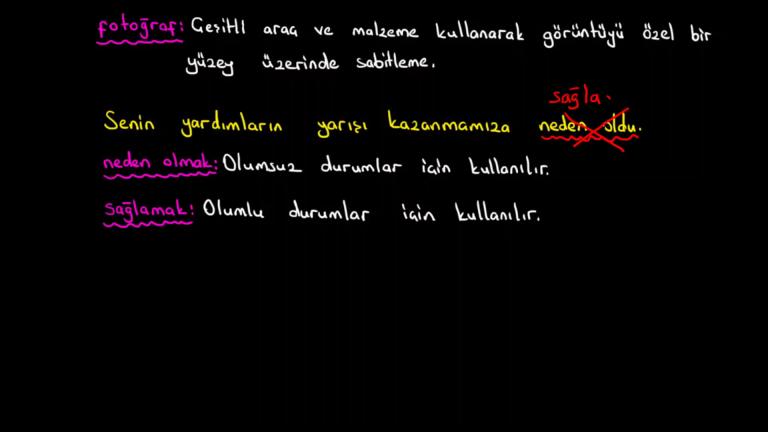 fotoğraf: Çeşitli araç ve malzeme kullanarak görüntüyü özel bir
yüzey üzerinde sabitleme.
sağla.
Senin yardımların yarışı kazanmamıza neden oldu.
neden olmak: Olumsuz durumlar için kullanılır.
sağlamak: Olumlu durumlar için kullanılır.